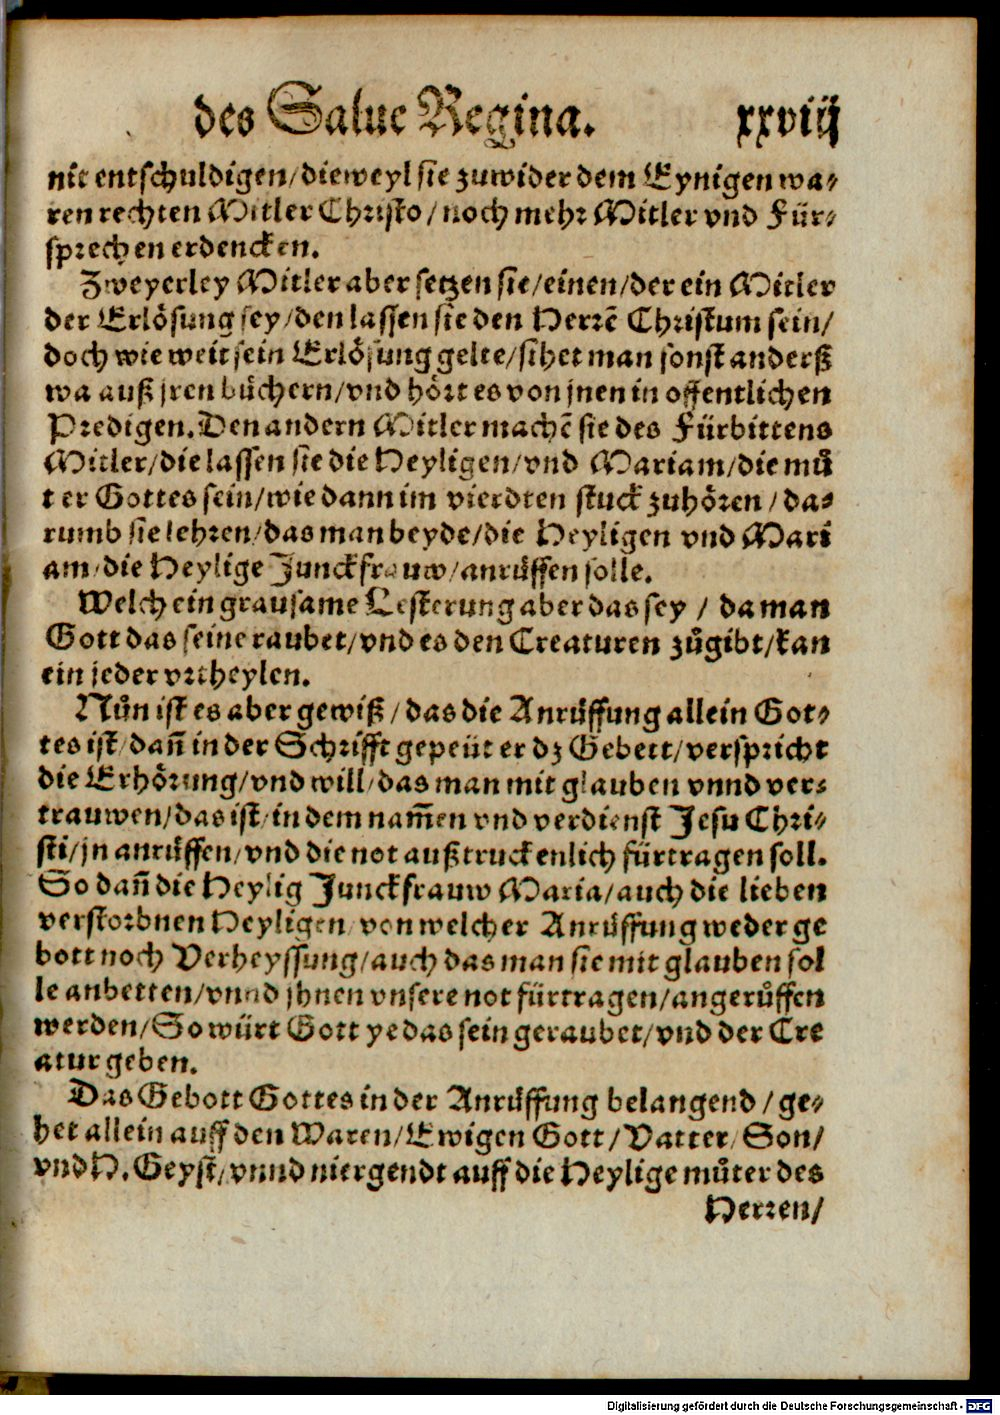 des Salue Regina. xxviij
nit entschuldigen/dieweyl sie zuwider dem Eynigen wa⸗
ren rechten Mitler Christo/noch mehr Mitler vnd Für⸗
sprechen erdencken.
Zweyerley Mitler aber setzen sie/einen/der ein Mitler
der Erlösung sey/den lassen sie den Herrē Christum sein/
doch wie weit sein Erlösung gelte/sihet man sonst anderß
wa auß jren bůchern/vnd hört es von jnen in offentlichen
Predigen. Den andern Mitler machē sie des Fürbittens
Mitler/die lassen sie die Heyligen/vnd Mariam/die mů
ter Gottes sein/wie dann im vierdten stuck zuhören/da⸗
rumb sie lehren/das man beyde/die Heyligen vnd Mari
am/die Heylige Junckfrauw/anrůffen solle.
Welch ein grausame Lesterung aber das sey/da man
Gott das seine raubet/vnd es den Creaturen zůgibt/kan
ein jeder vrtheylen.
Nůn ist es aber gewiß/das die Anrůffung allein Got⸗
tes ist/dañ in der Schrifft gepeüt er dz Gebett/verspricht
die Erhörung/vnd will/das man mit glauben vnnd ver⸗
trauwen/das ist/in dem nam̄en vnd verdienst Jesu Chri⸗
sti/jn anrůffen/vnd die not außtruckenlich fürtragen soll.
So dañ die Heylig Junckfrauw Maria/auch die lieben
verstorbnen Heyligen/von welcher Anrůffung weder ge
bott noch Verheyssung/auch das man sie mit glauben sol
le anbetten/vnnd jhnen vnsere not fürtragen/angerůffen
werden/So würt Gott ye das sein geraubet/vnd der Cre
atur geben.
Das Gebott Gottes in der Anrůffung belangend/ge⸗
het allein auff den Waren/Ewigen Gott/Vatter/Son/
vnd H. Geyst/vnnd niergendt auff die Heylige můter des
Herren/
Digitalisierung gefördert durch die Deutsche Forschungsgemeinschaft - DFG